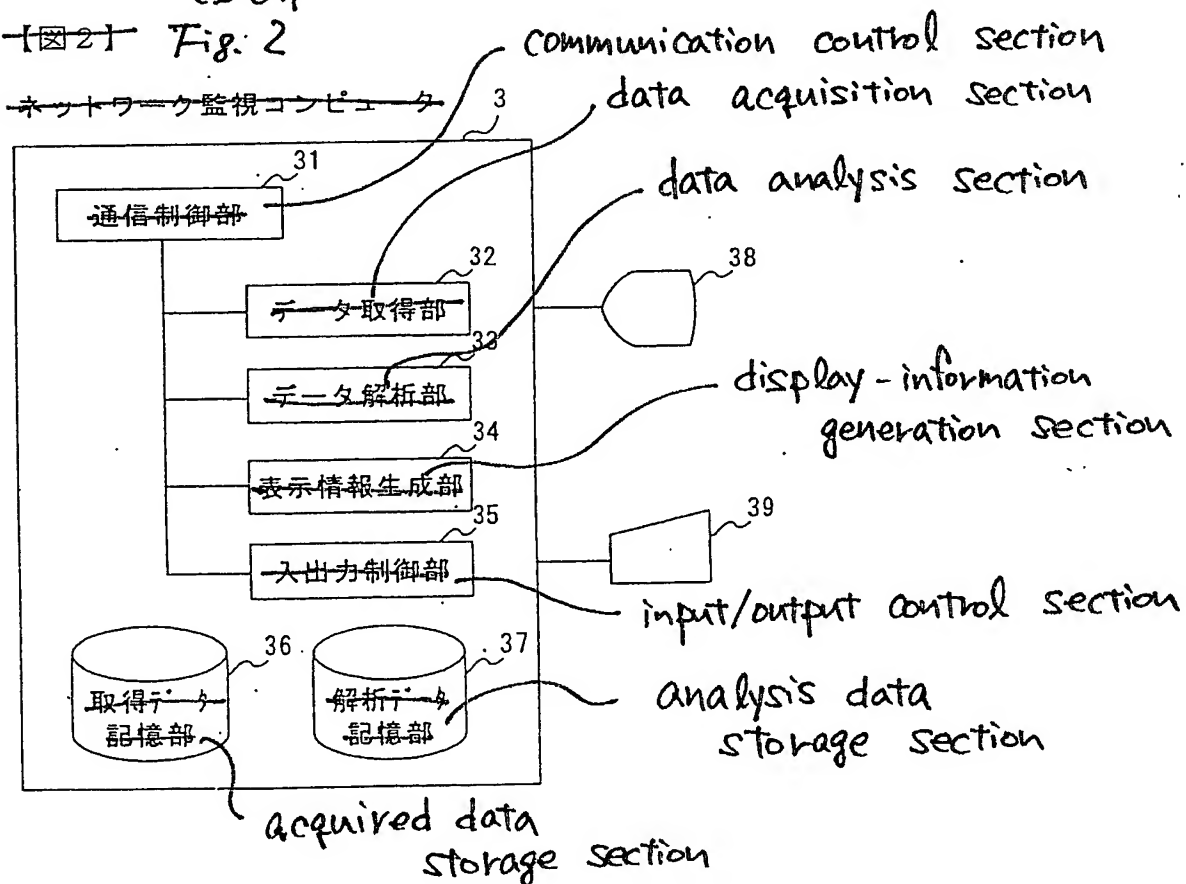 【図2】 Fig. 2
communication control section
ネットワーク監視コンピュータ
3
data acquisition section
31
通信制御部
data analysis section
32
データ取得部
38
33
データ解析部
display-information
generation section
34
表示情報生成部
35
入出力制御部
39
input/output control section
36
取得データ
記憶部
37
解析データ
記憶部
analysis data
storage section
acquired data
storage section